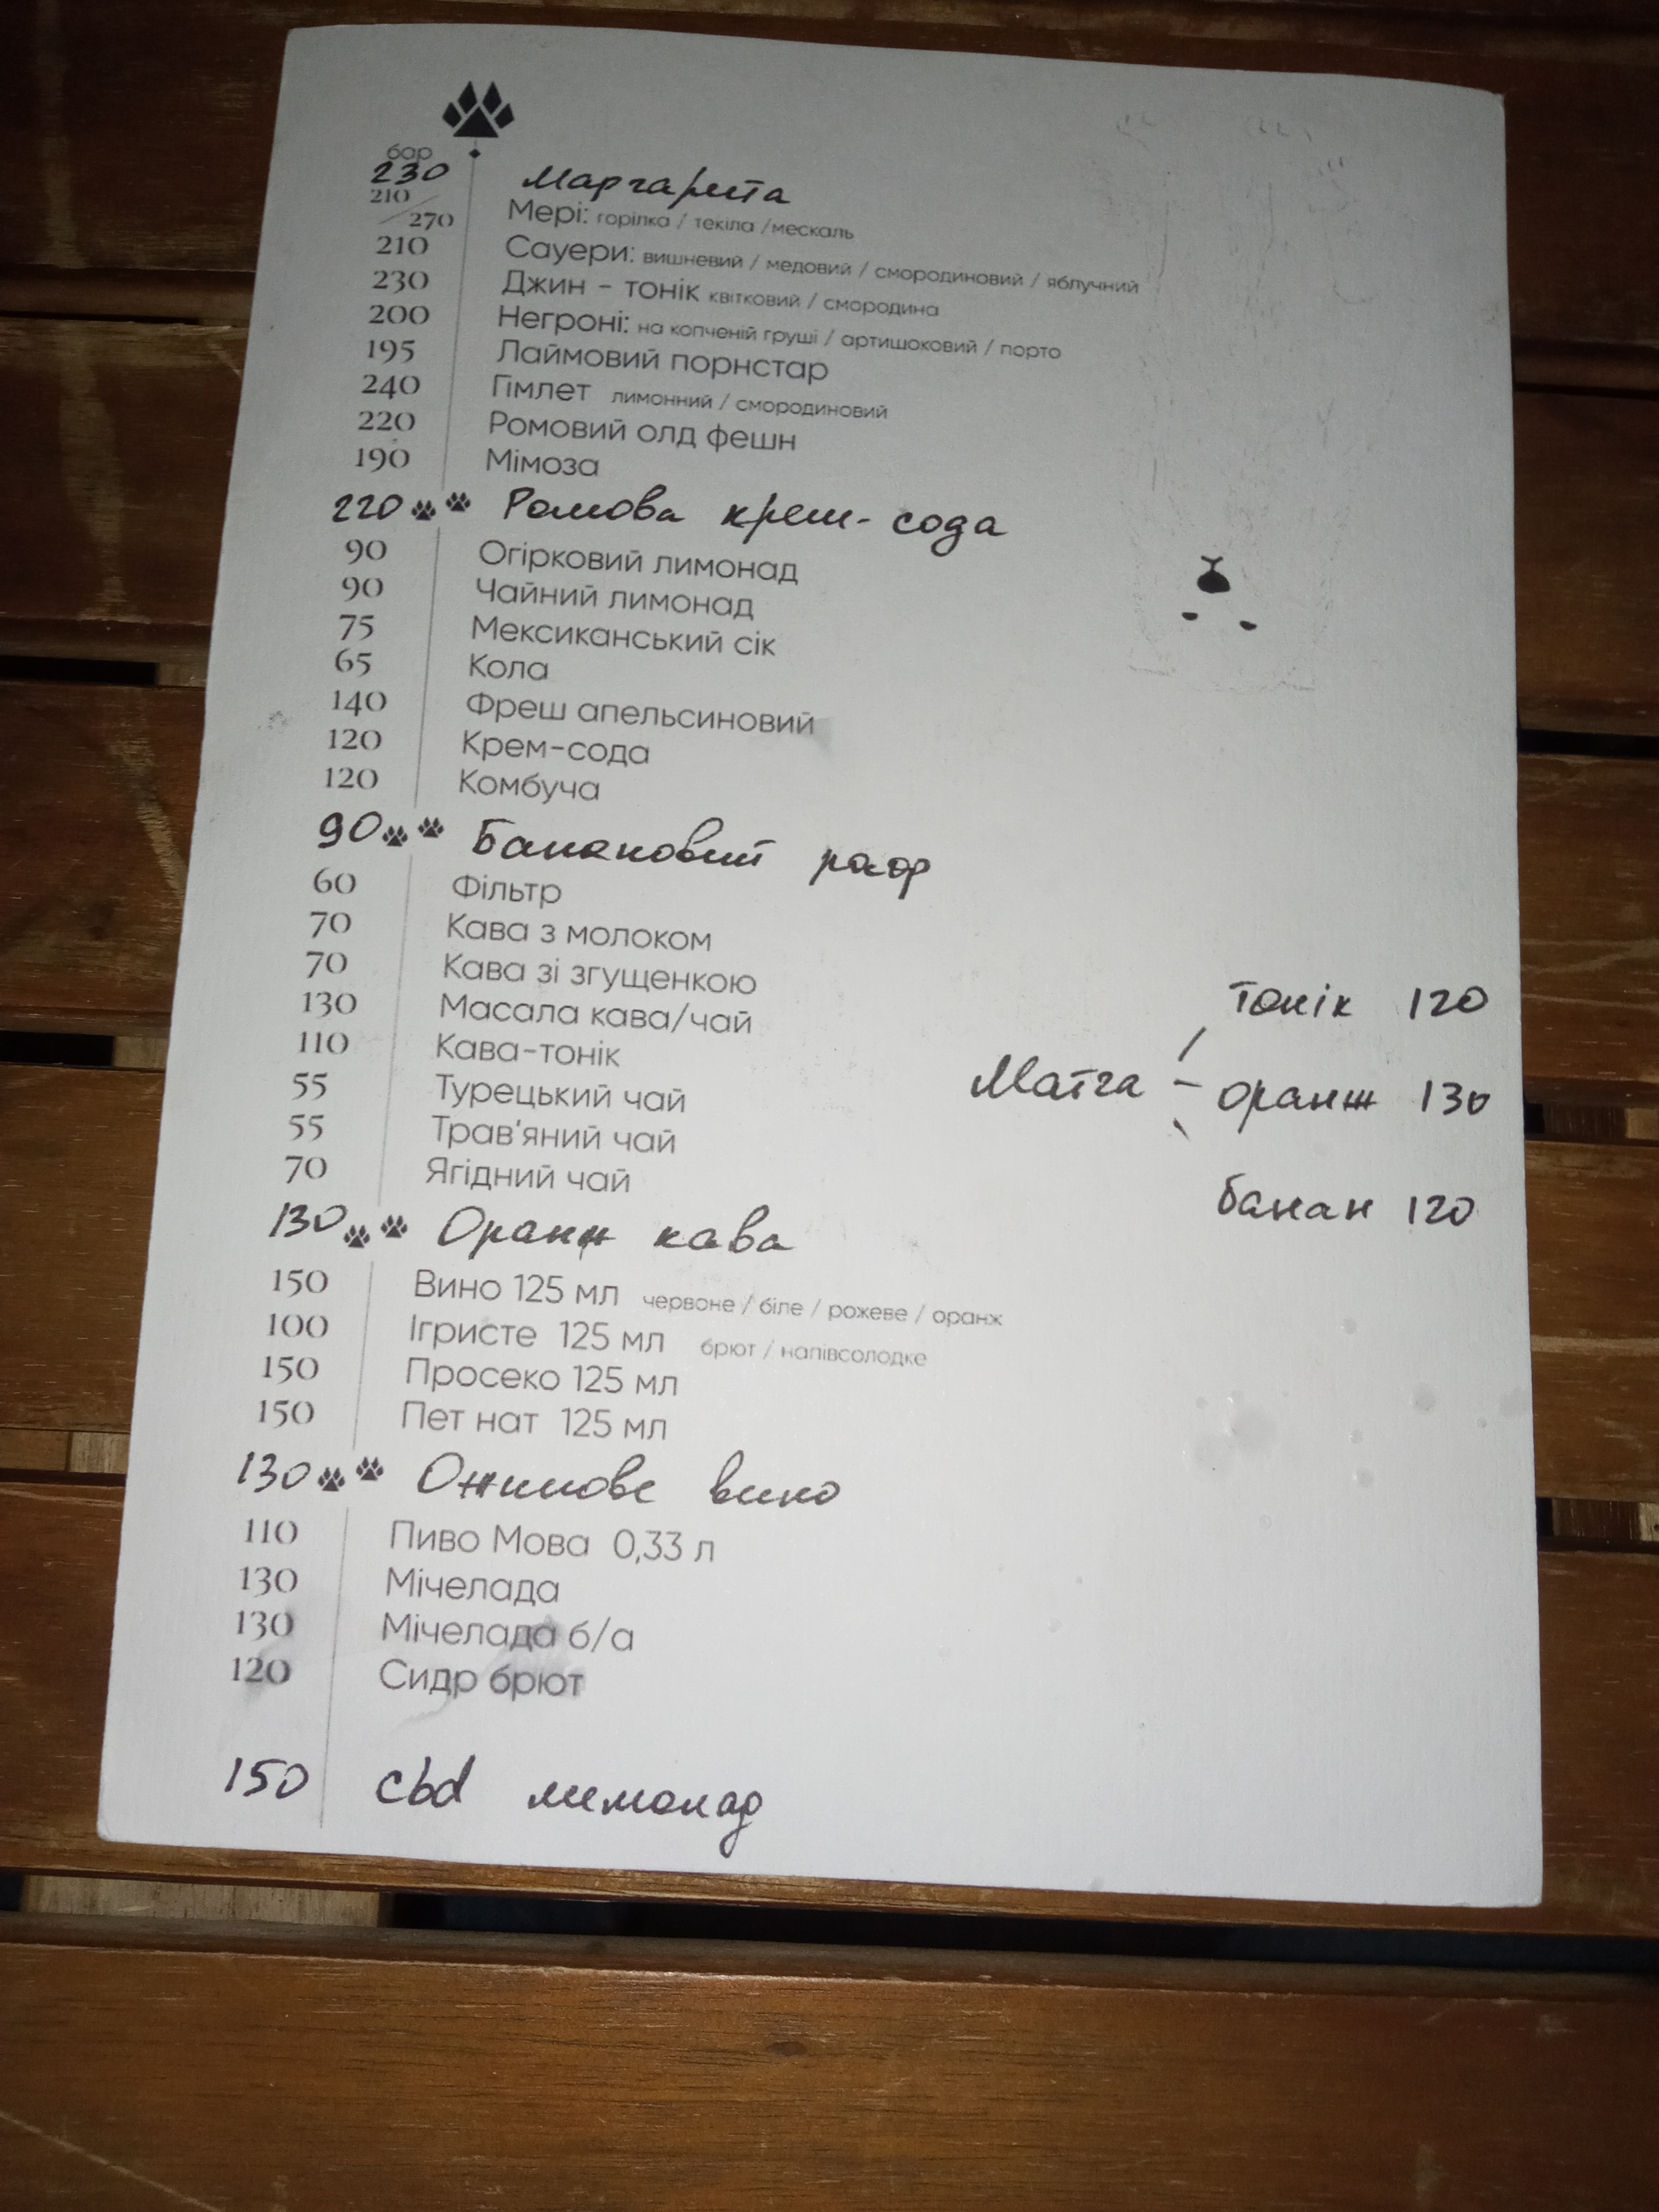 бар
230 Маргарита
210/270 Мері: горілка / текіла /мескаль
210 Сауери: вишневий / медовий / смородиновий / яблучний
230 Джин - тонік квітковий / смородина
200 Негроні: на копченій груші / артишоковий / порто
195 Лаймовий порнстар
240 Гімлет лимонний / смородиновий
220 Ромовий олд фешн
190 Мімоза
220 Ромова крем-сода
90 Огірковий лимонад
90 Чайний лимонад
75 Мексиканський сік
65 Кола
140 Фреш апельсиновий
120 Крем-сода
120 Комбуча
90 Банановий раф
60 Фільтр
70 Кава з молоком
70 Кава зі згущенкою
130 Масала кава/чай
110 Кава-тонік
55 Турецький чай
55 Трав'яний чай
70 Ягідний чай
Матча
тонік 120
оранж 130
банан 120
130 Оранж кава
150 Вино 125 мл червоне / біле / рожеве / оранж
100 Ігристе 125 мл брют / напівсолодке
150 Просеко 125 мл
150 Пет нат 125 мл
130 Ожинове вино
110 Пиво Мова 0,33 л
130 Мічелада
130 Мічелада б/а
120 Сидр брют
150 cbd лимонад